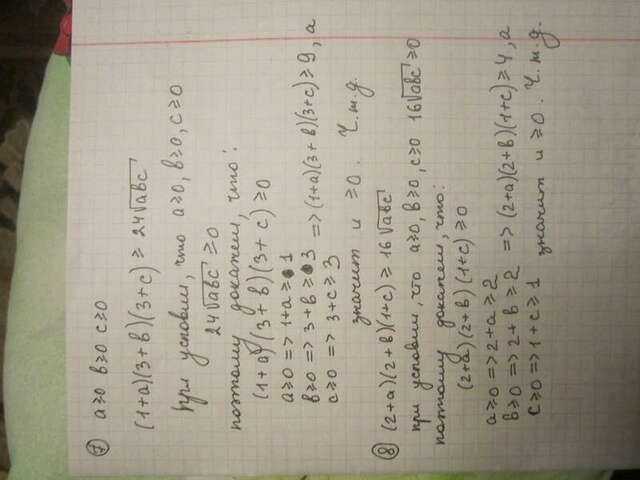 ⑦ a≥0 в≥0 c≥0
(1+a)(3+в)(3+c) ≥ 24√abc
при условии, что a≥0, в≥0, c≥0
24√abc ≥0
поэтому докажем, что:
(1+a)(3+в)(3+c) ≥0
a≥0 => 1+a ≥ 1
в≥0 => 3+в ≥ 3 => (1+a)(3+в)(3+c) ≥ 9, а
c≥0 => 3+c ≥ 3
значит и ≥0. Ч.т.д.
⑧ (2+a)(2+в)(1+c) ≥ 16√abc
при условии, что a≥0, в≥0, c≥0 16√abc ≥0
поэтому докажем, что:
(2+a)(2+в)(1+c) ≥0
a≥0 => 2+a ≥2
в≥0 => 2+в ≥ 2 => (2+a)(2+в)(1+c) ≥ 4, а
c≥0 => 1+c ≥ 1 значит и ≥0. Ч.т.д.